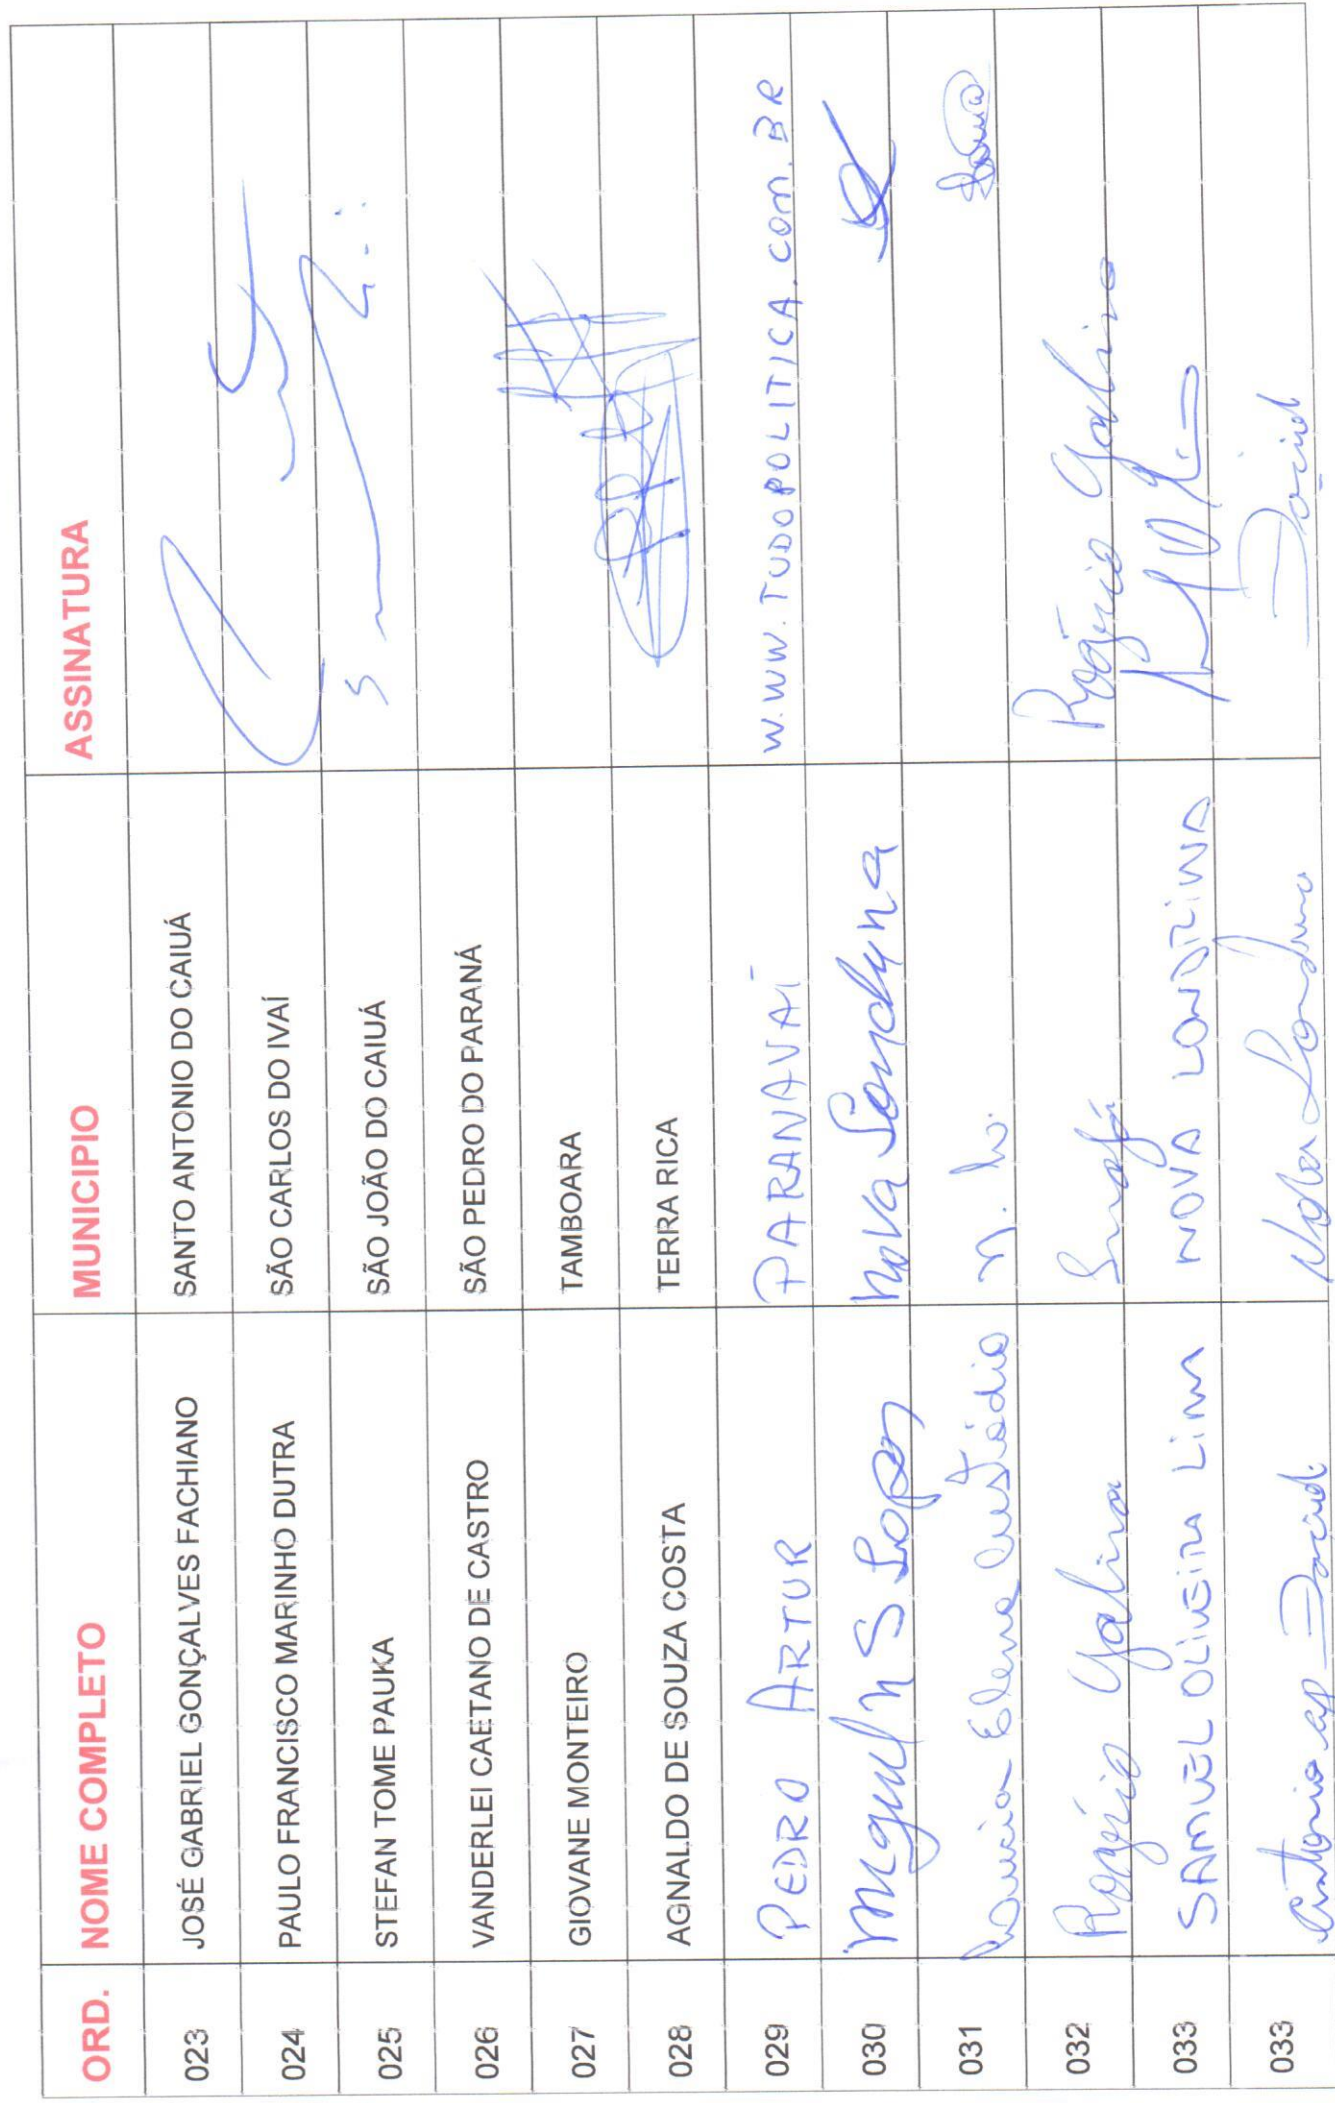 ORD. NOME COMPLETO MUNICIPIO ASSINATURA
023 JOSÉ GABRIEL GONÇALVES FACHIANO SANTO ANTONIO DO CAIUÁ
024 PAULO FRANCISCO MARINHO DUTRA SÃO CARLOS DO IVAÍ
025 STEFAN TOME PAUKA SÃO JOÃO DO CAIUÁ
026 VANDERLEI CAETANO DE CASTRO SÃO PEDRO DO PARANÁ
027 GIOVANE MONTEIRO TAMBOARA
028 AGNALDO DE SOUZA COSTA TERRA RICA
029 PEDRO ARTUR PARANAVAÍ W.WW.TUDOPOLITICA.COM.BR
030 Miguel S Lopes Nova Londrina
031 Elena Custódio
032 Rogério Galina Rogério Galina
033 SAMUEL OLIVEIRA LIMA NOVA LONDRINA
033 Antonio ap David Nova Londrina David